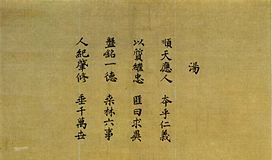 湯
順天應人 本乎仁義
以質繼忠 匪曰求異
盤銘一德 桑林六事
人紀肇修 垂千萬世